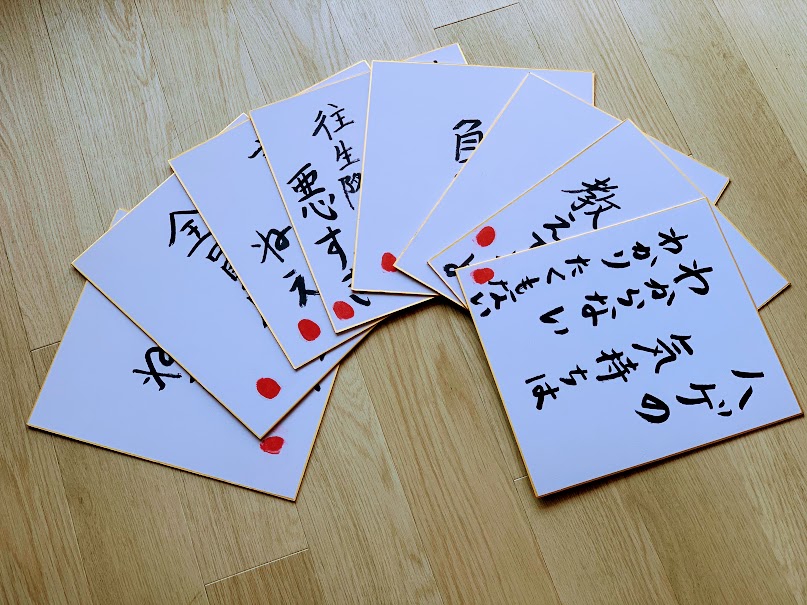 ハゲの
気持ちは
わからない
わかりたくもない
教え
負
往生際
悪す
ねえ
全
ね